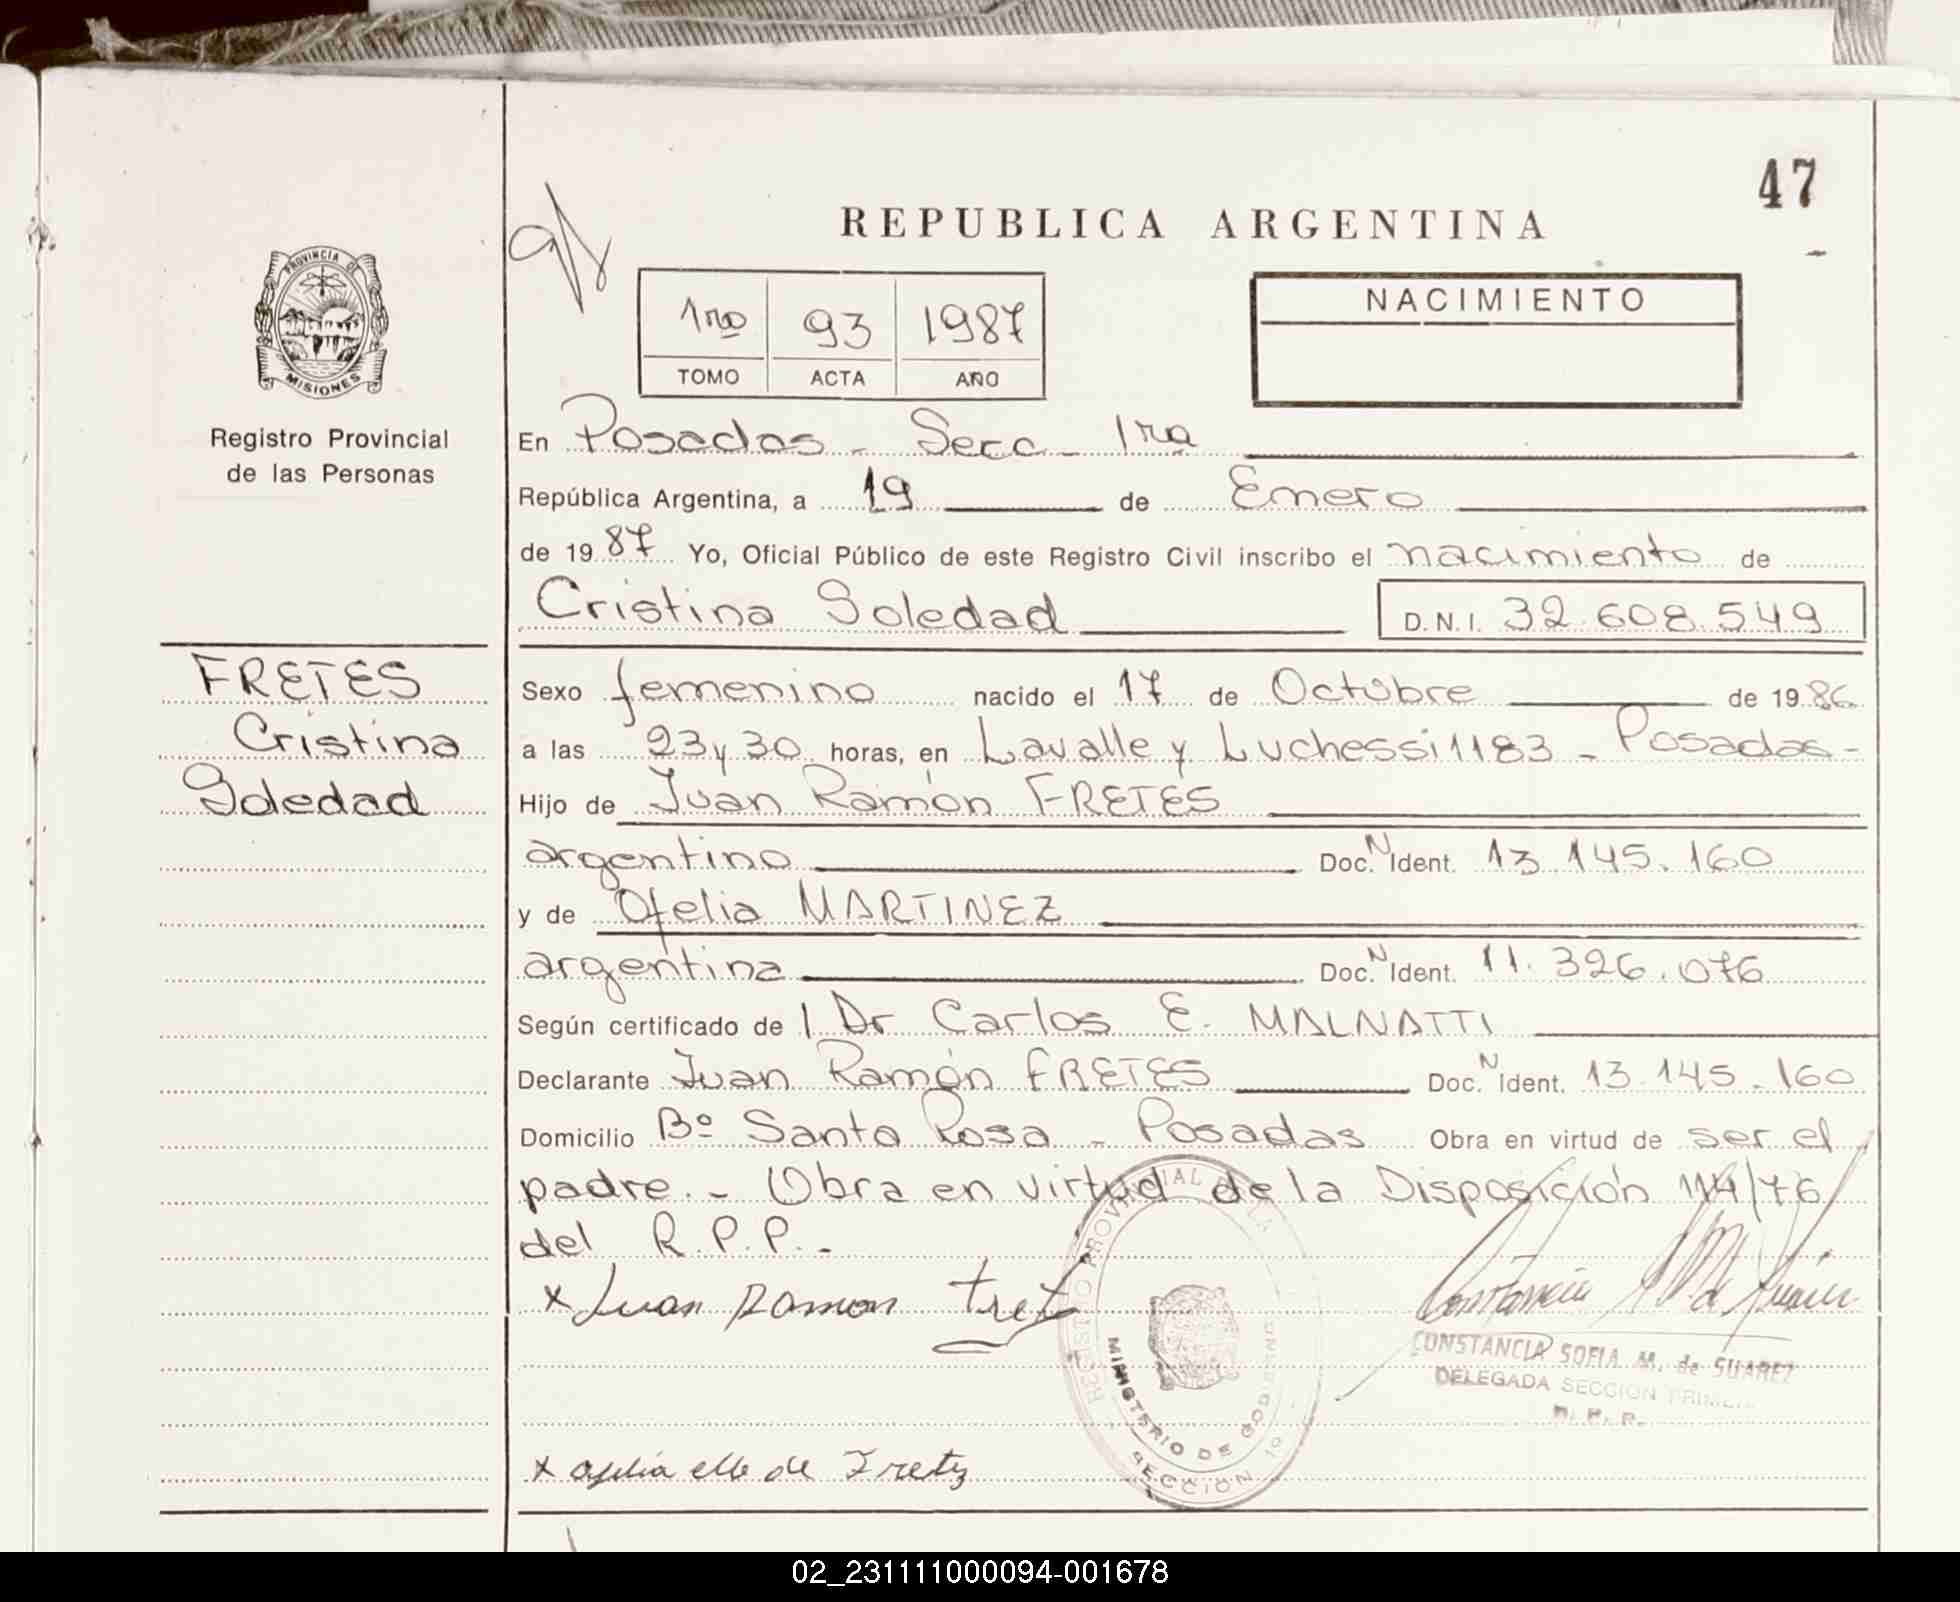 47
REPUBLICA ARGENTINA
PROVINCIA DE
MISIONES
Registro Provincial
de las Personas
1ro 93 1987
TOMO ACTA AÑO
NACIMIENTO
En Posadas - Secc - 1ra
República Argentina, a 19 de Enero
de 1987 Yo, Oficial Público de este Registro Civil inscribo el nacimiento de
Cristina Soledad D.N.I. 32.608.549
FRETES
Cristina
Soledad
Sexo femenino nacido el 17 de Octubre de 1986
a las 23 y 30 horas, en Lavalle y Luchessi 1183 - Posadas -
Hijo de Juan Ramón FRETES
argentino Doc. N Ident. 13.145.160
y de Ofelia MARTINEZ
argentina Doc. N Ident. 11.326.076
Según certificado de l Dr Carlos E. MALNATTI
Declarante Juan Ramón FRETES Doc. N Ident. 13.145.160
Domicilio Bº Santa Rosa - Posadas Obra en virtud de ser el
padre. - Obra en virtud de la Disposición 114/76
del R.P.P. -
x Juan Ramon Fret
REGISTRO PROVINCIAL DE LA
MINISTERIO DE GOBIERNO
SECCION 1º
CONSTANCIA SOFIA M. de SUAREZ
DELEGADA SECCION PRIMERA
R. P. P.
x Ofelia de Fretes
02_231111000094-001678